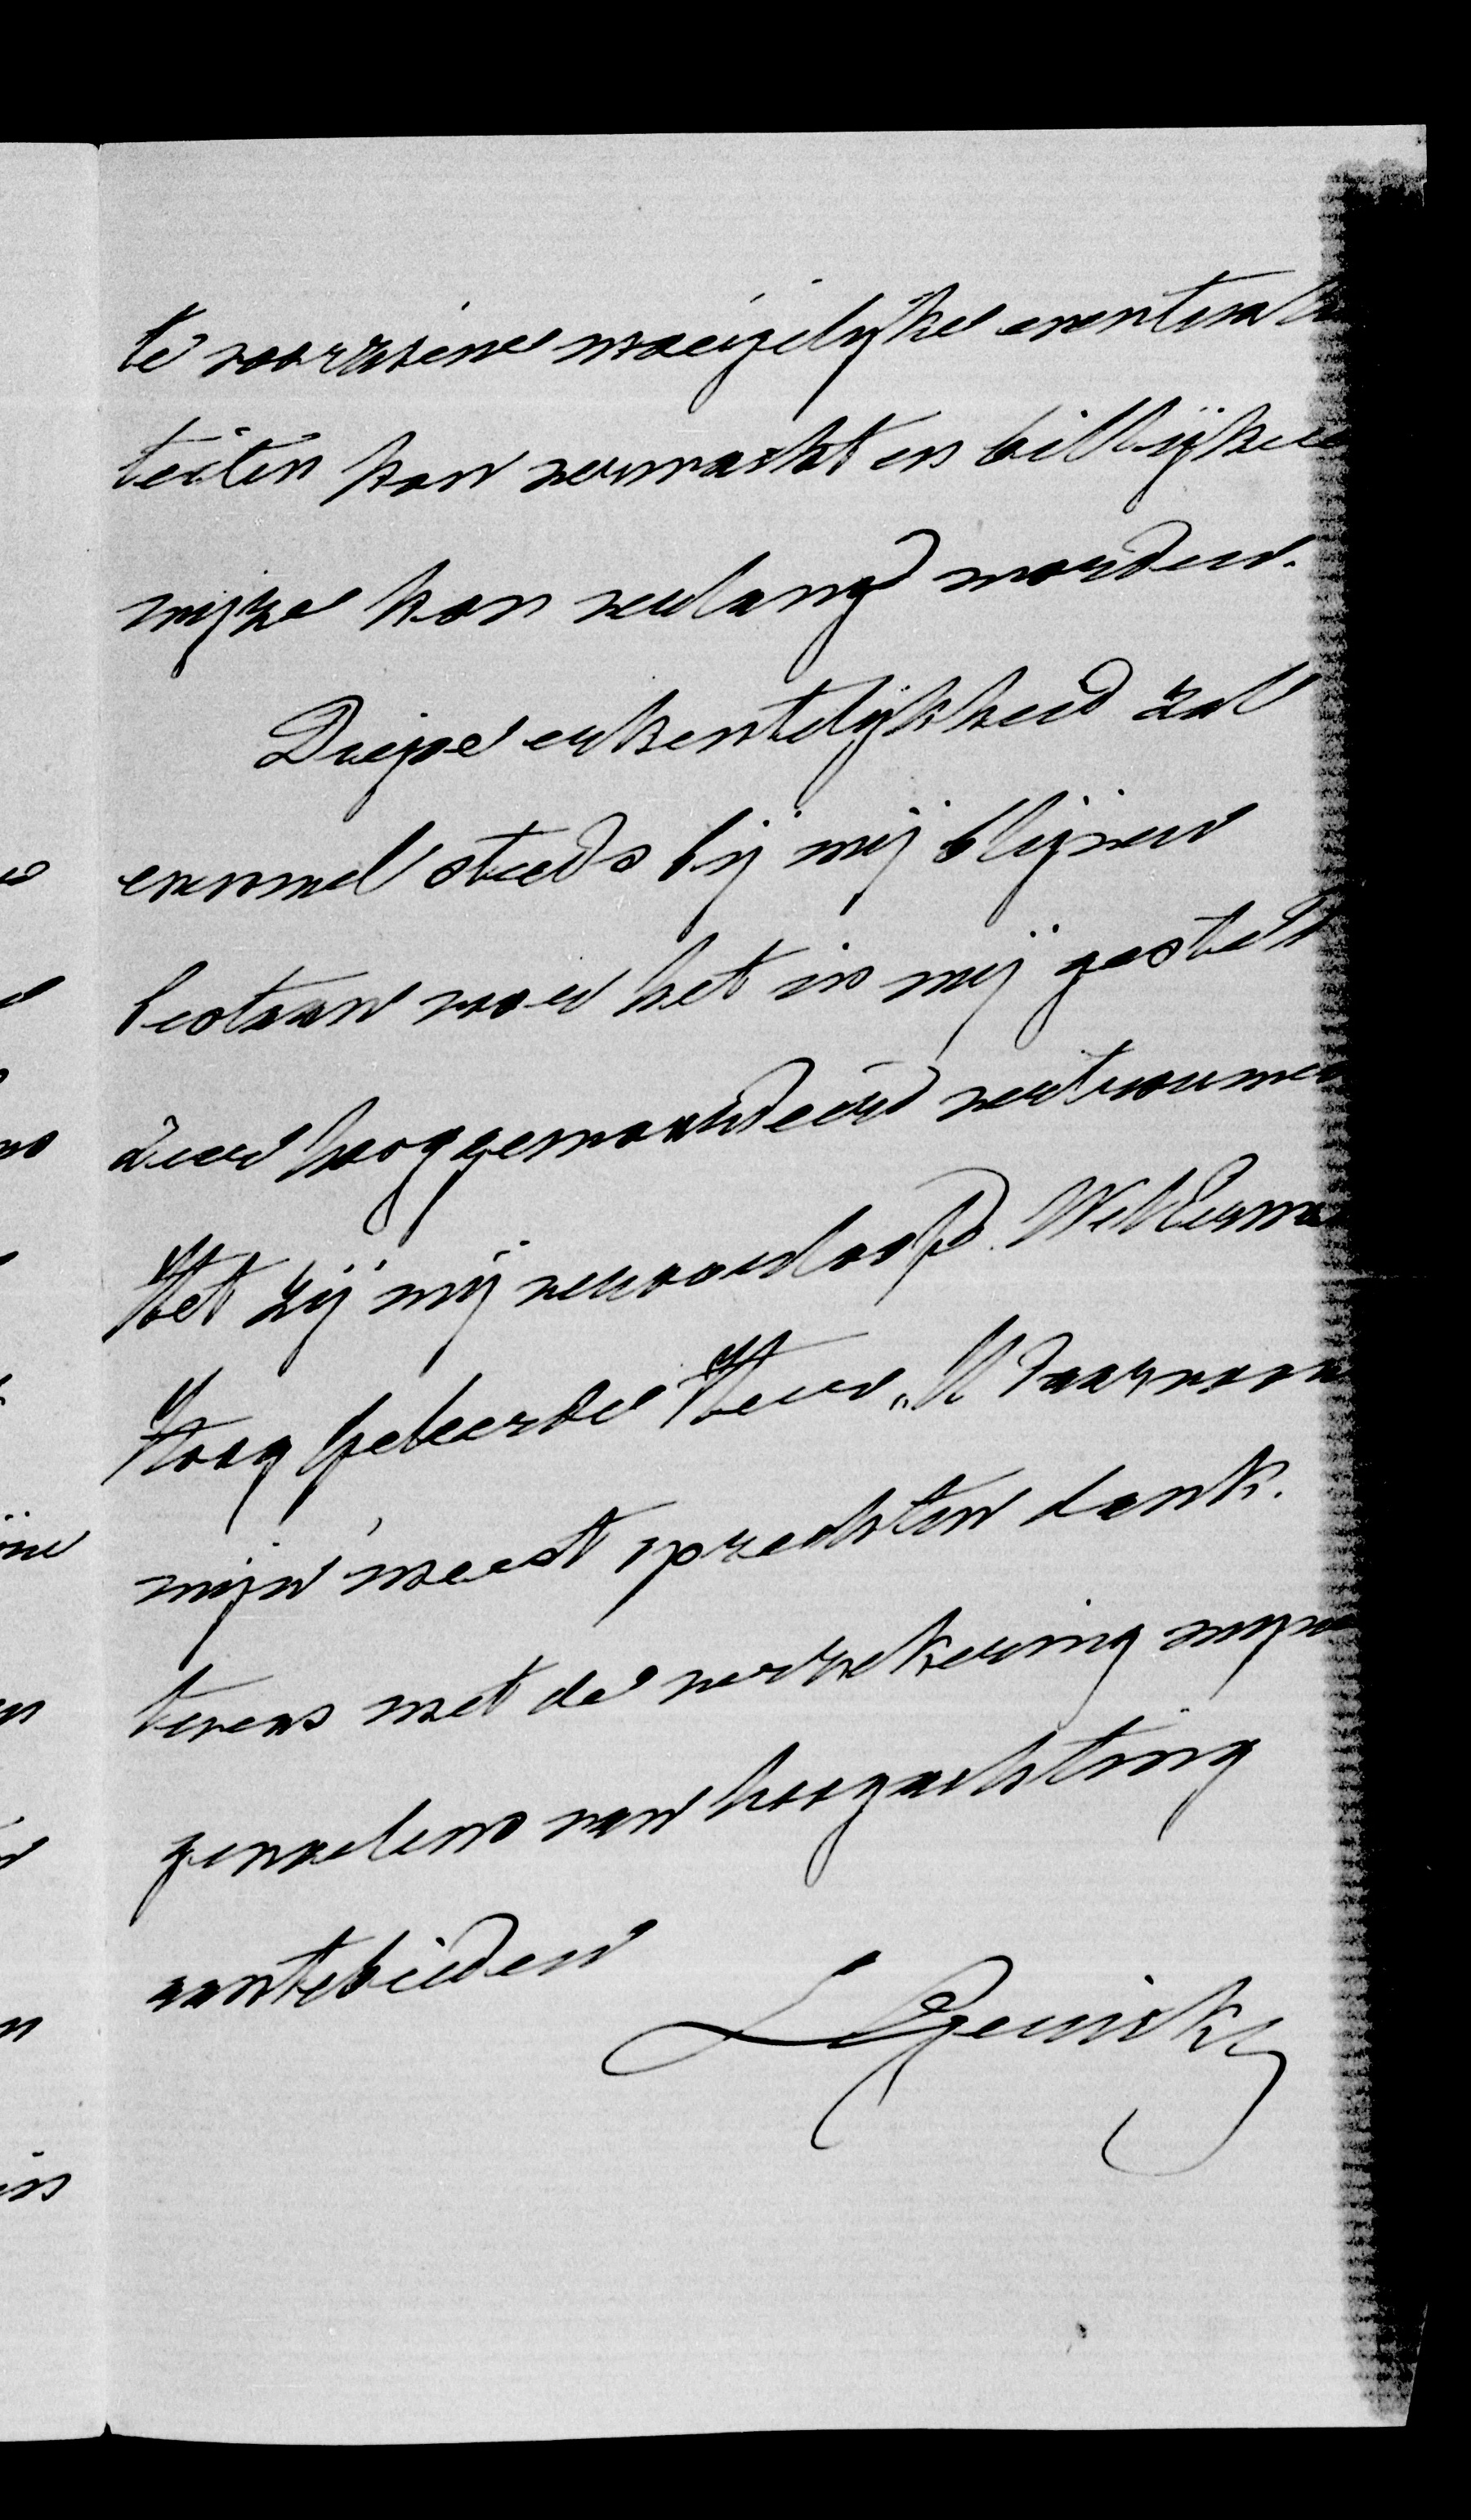 te voorziene moeijelijke eventuali
teiten kan verwacht en billijker
wijze kan verlangd worden.
Diepe erkentelijkheid zal
evenwel steeds bij mij blijven
bestaan voor het in mij gesteld
zeer hooggewaardeerd vertrouwen
Het zij mij veroorloofd WelEerw
Hoog Geleerde Heer, U daarvoor
mijn meest oprechten dank.
tevens met de verzekering mijner
gevoelens van hoogachting
aantebieden
L